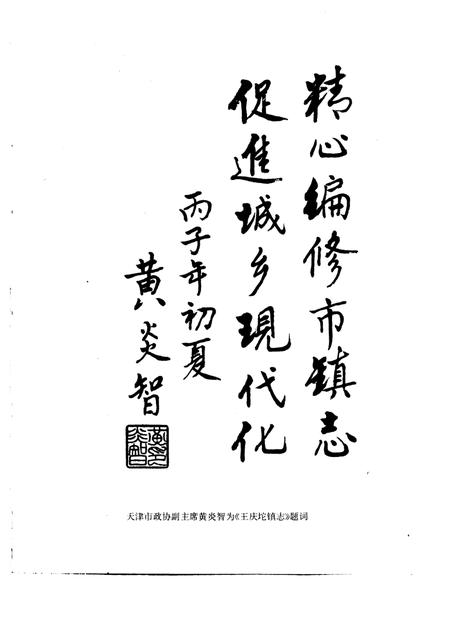 精心编修市镇志
促進城乡現代化
丙子年初夏
黄炎智
天津市政协副主席黄炎智为《王庆坨镇志》题词